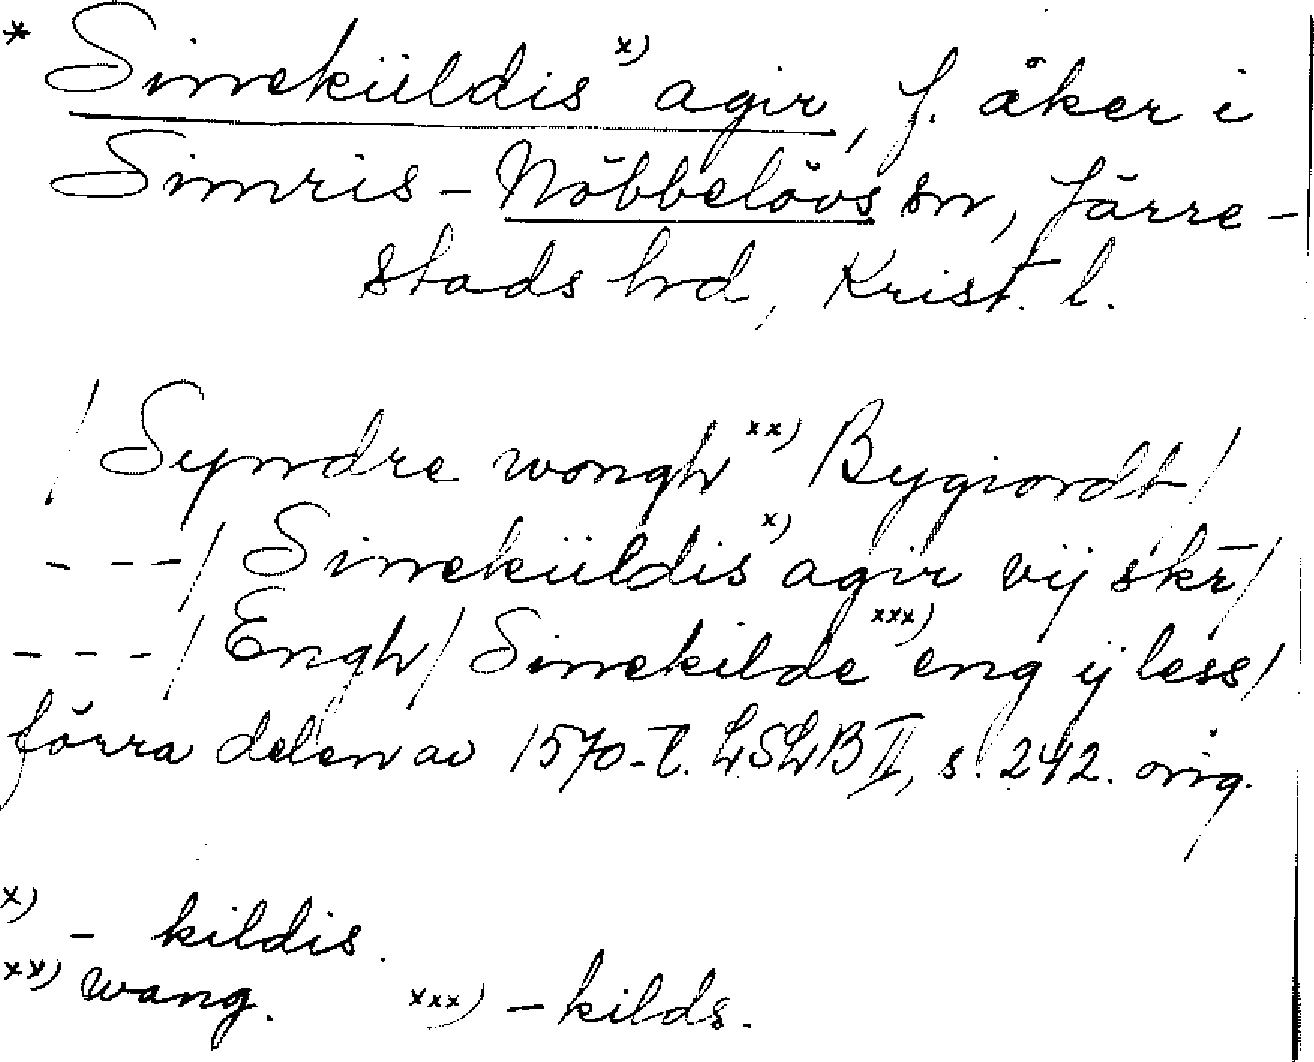 * Sinnekiildis x) agir, f. åker i
Simris-Nöbbelövs sn, Järre-
stads hd, Krist. l.
/ Syndre wongh xx) Bygiordt /
---/ Sinnekiildis x) agir vij skr̄ /
---/ Engh / Sinnekilde xxx) eng ij less /
förra delen av 1570-t. LSLB II, s. 242. orig.
x) - kildis.
xx) wang. xxx) - kilds.